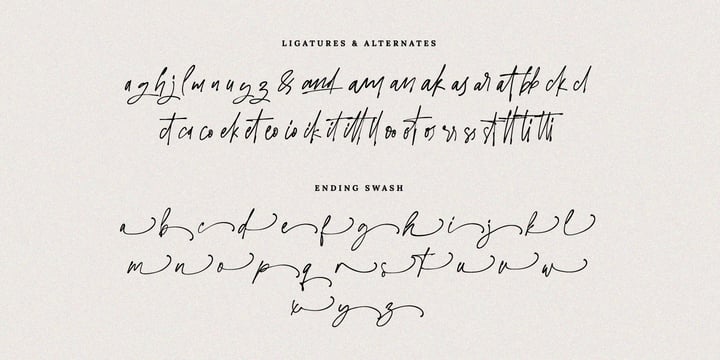 LIGATURES & ALTERNATES
a g h j l m n u y z & and am an ak as ar at bb ck d
ct ca co ek et eo io ik it itt ll oo ot os rr ss st tt ti tti
ENDING SWASH
a b c d e f g h i j k l
m n o p q r s t u v w
x y z